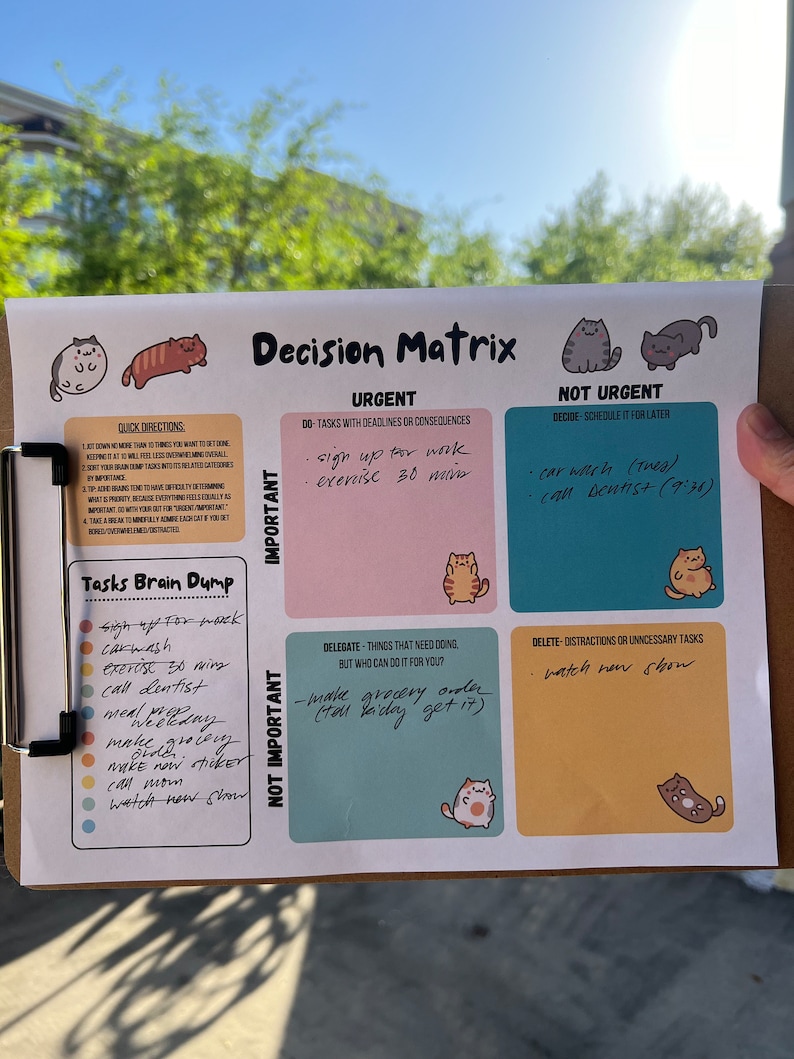 Decision Matrix
URGENT
NOT URGENT
QUICK DIRECTIONS:
1. JOT DOWN NO MORE THAN 10 THINGS YOU WANT TO GET DONE.
KEEPING IT AT 10 WILL FEEL LESS OVERWHELMING OVERALL.
2. SORT YOUR BRAIN DUMP TASKS INTO ITS RELATED CATEGORIES
BY IMPORTANCE.
3. TIP: ADHD BRAINS TEND TO HAVE DIFFICULTY DETERMINING
WHAT IS PRIORITY, BECAUSE EVERYTHING FEELS EQUALLY AS
IMPORTANT. GO WITH YOUR GUT FOR "URGENT/IMPORTANT."
4. TAKE A BREAK TO MINDFULLY ADMIRE EACH CAT IF YOU GET
BORED/OVERWHELEMED/DISTRACTED.
Tasks Brain Dump
sign up for work
car wash
exercise 30 mins
call dentist
meal prep
weekday
make grocery
order
make new sticker
call mom
watch new show
IMPORTANT
DO- TASKS WITH DEADLINES OR CONSEQUENCES
· sign up for work
· exercise 30 mins
DECIDE- SCHEDULE IT FOR LATER
· car wash (Tues)
· call Dentist (9:30)
NOT IMPORTANT
DELEGATE - THINGS THAT NEED DOING,
BUT WHO CAN DO IT FOR YOU?
- make grocery order
(tell get it)
DELETE- DISTRACTIONS OR UNNCESSARY TASKS
· watch new show